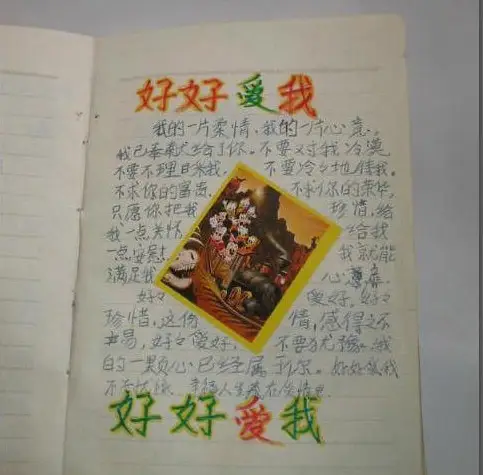 好好爱我
我的一片柔情，我的一片心意。
我已奉献给了你。不要又对我冷漠
不要不理睬我。 不要冷冷地情我。
不求你的富贵， 不求你的荣华，
只愿你把我 珍惜，给
我一点关怀 给我
一点安慰 我就能
满足我 心愿
好々 爱好，好々
珍惜，这份 情，感情之不
易，好々爱好， 不要犹豫，我
的一颗心已经属于你。好好爱我
幸福人生
好好爱我